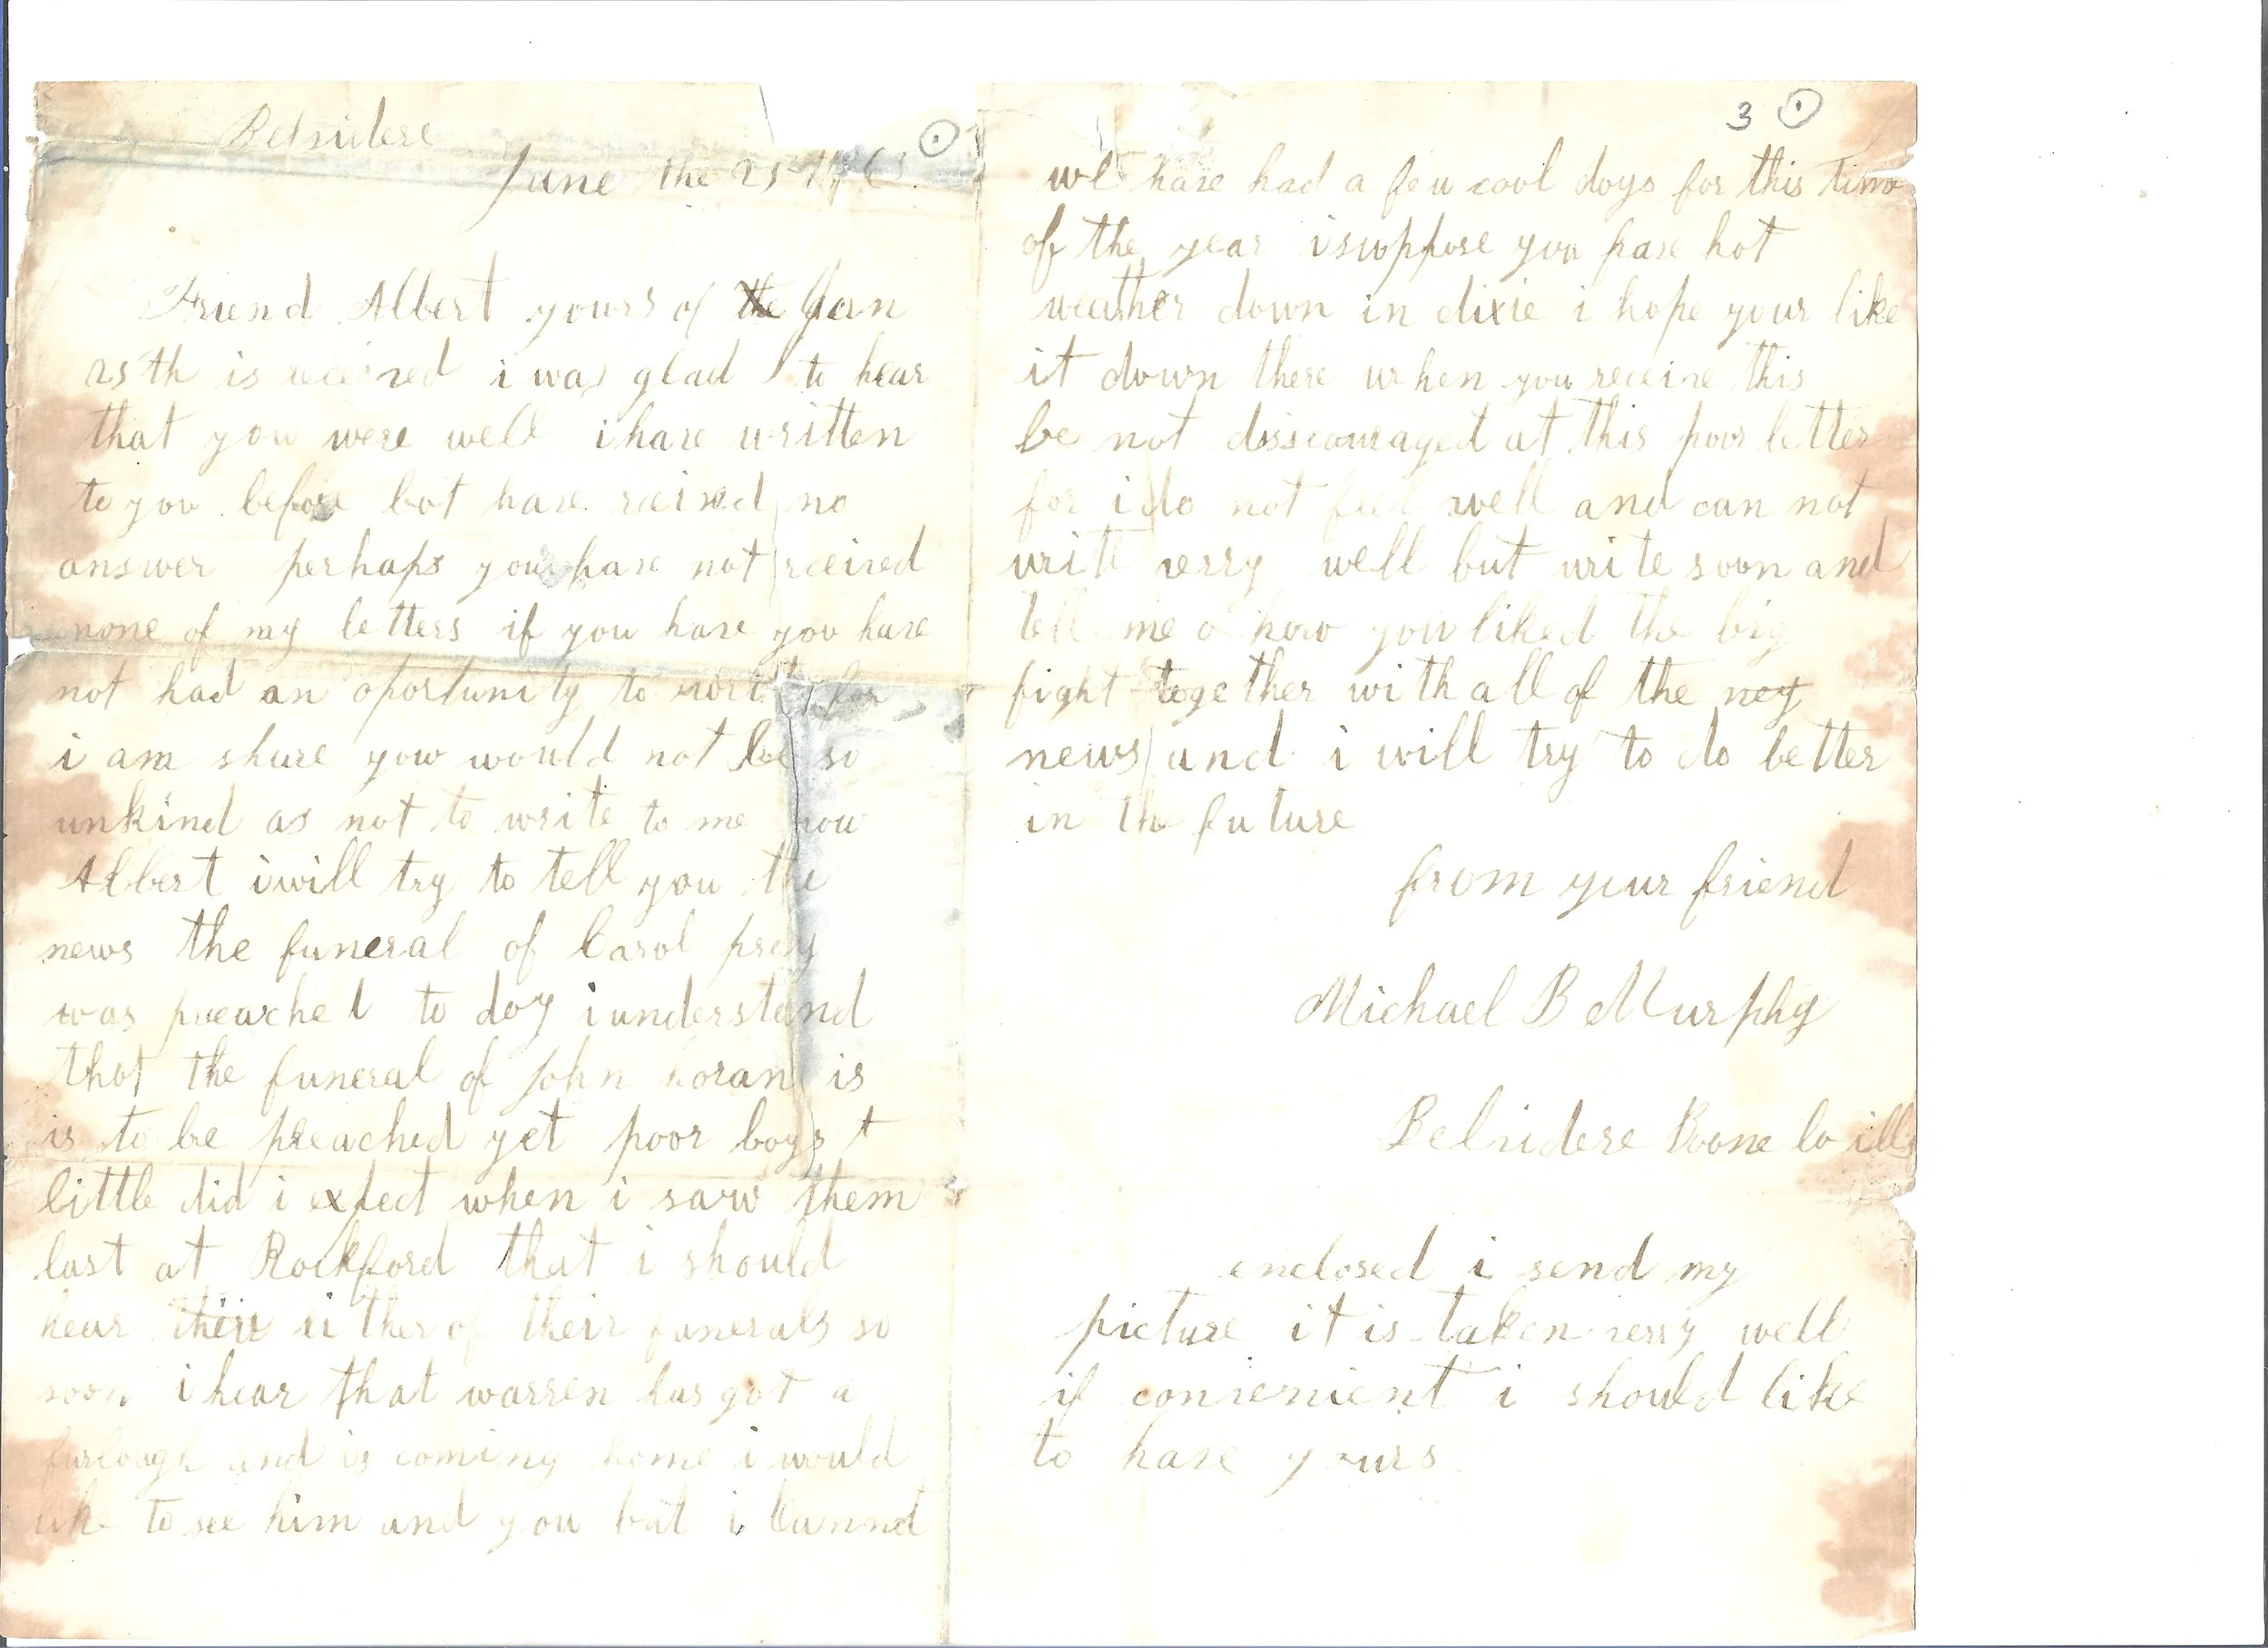 Belvidere
June the 25th
Friend Albert yours of the Jan
25th is received i was glad to hear
that you were well i have written
to you before but have rceived no
answer perhaps you have not rceived
none of my letters if you have you have
not had an oportunity to for
i am shure you would not be so
unkind as not to write to me now
Albert i will try to tell you the
news the funeral of Carol
was preached to day i understand
that the funeral of John horan is
is to be preached yet poor boys
little did i expect when i saw them
last at Rockford that i should
hear their either of their funerals so
soon i hear that warren has got a
furlough and is coming home i would
like to see him and you but i Cannot
3
we have had a few cool days for this time
of the year i suppose you have hot
weather down in dixie i hope your like
it down there when you receive this
be not disscouraged at this poor letter
for i do not feel well and can not
write verry well but write soon and
tell me o how you liked the big
fight together with all of the
news and i will try to do better
in the future
from your friend
Michael B Murphy
Belvidere Boone Co ills
enclosed i send my
picture it is taken verry well
if convenient i should like
to have yours